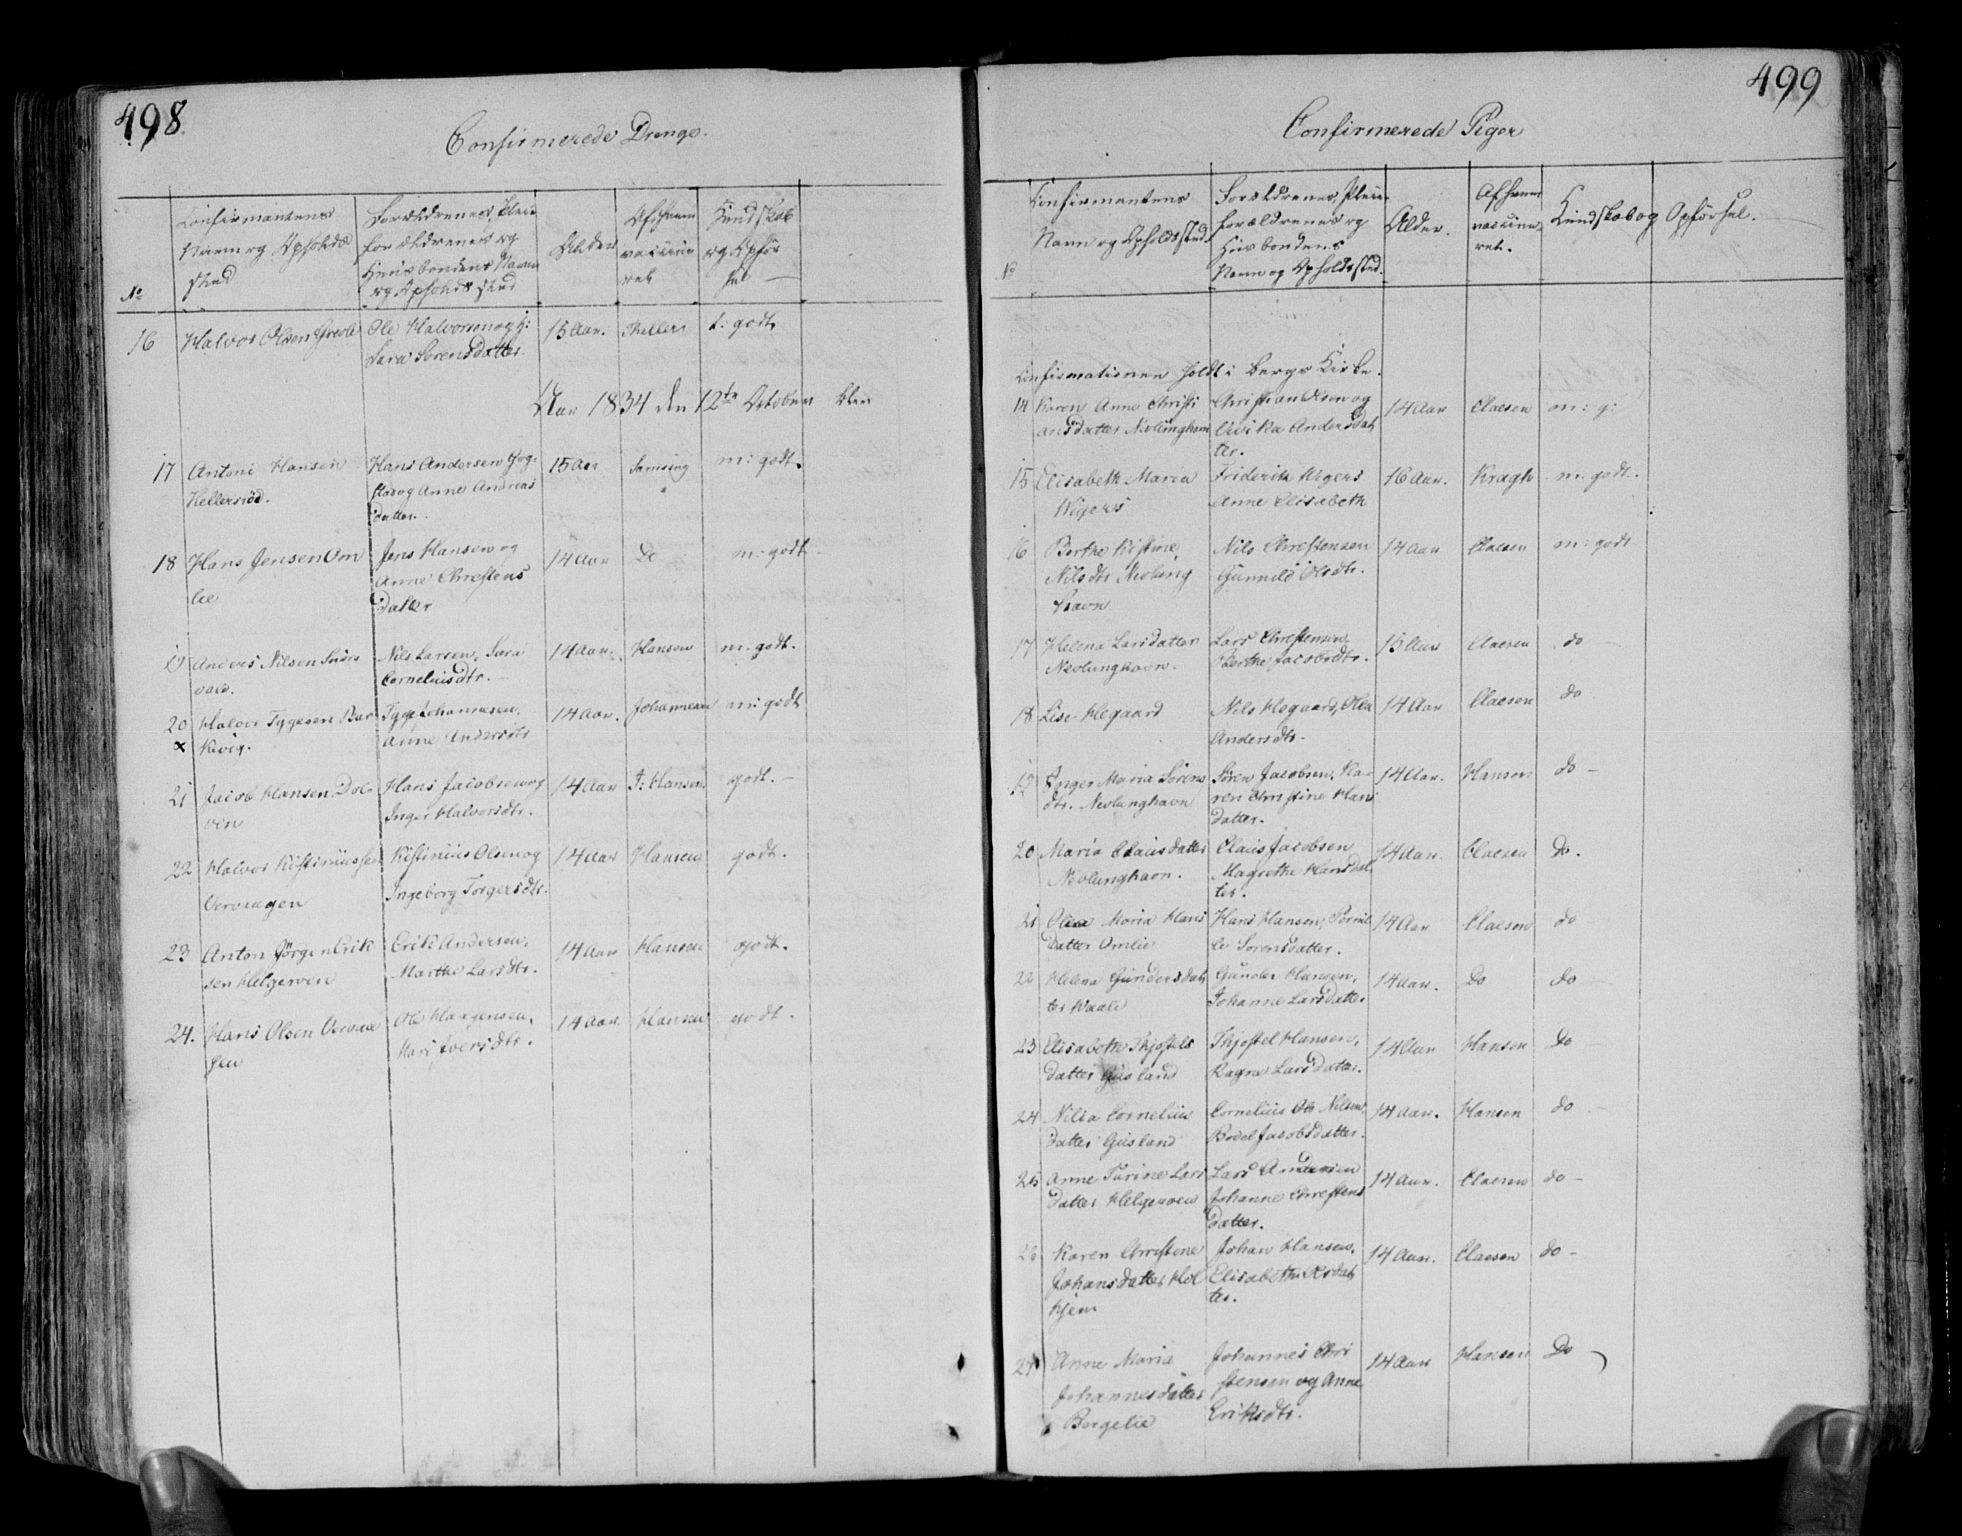 498
Confirmerede Drenge.
No
Confirmantens
Navn og Opholds
sted
Forældrenes, Pleie
forældrenes og
Huusbondens Navn
og Opholdssted
Alder
Af hvem
vaccine
ret
Kundskab
og Opfør
sel
16 Halvor Olsen
Ole Halvorsen og
Sara Sørensdatter
15 Aar.
t: godt
Aar 1834 den 12te October blev
17 Antoni Hansen
Hellersröd.
Hans Andersen
og Anne Andreas
datter.
15 Aar
Samsing
m: godt.
18 Hans Jensen Om
lie
Jens Hansen og
Anne Chrestens
datter
14 Aar
Do
m: godt
19 Anders Nilsen
Nils Larsen, Sara
Corneliusdtr.
14 Aar.
Hansen
m: godt.
20 Halvor Tygesen Bar
x kevig.
Tyge Johannesen,
Anne Andersdtr
14 Aar.
Johannesen
m: godt
21 Jacob Hansen Dol
ven
Hans Jacobsen og
Inger Halvorsdtr.
14 Aar
J: Hansen
godt.
22 Halvor Kistinius
Vervaagen
Kistinius Olsen og
Ingeborg Torgersdtr.
14 Aar
Hansen
godt.
23 Anton Jörgen Erik
sen Helgeroen
Erik Andersen,
Marthe Larsdtr.
14 Aar
Hansen
godt.
24. Hans Olsen Vervaa
gen
Ole
Kari Iversdtr.
14 Aar
Hansen
godt.
499
Confirmerede Piger
No
Confirmantens
Navn og Opholdssted.
Forældrenes, Pleie
forældrenes og
Huusbondens
Navn og Opholdssted.
Alder.
Af hvem
vaccine
ret.
Kundskab og Opførsel.
Confirmationen holdt i Bergs Kirke.
14 Karen Anne Christi
ansdatter Nevlunghavn
Christian Olsen og
Vivika Andersdat
ter.
14 Aar
Claesen
m: g:
15 Elisabeth Maria
Wigers
Friderik Wigers
Anne Elisabeth
16 Aar.
Kragh
m: godt.
16 Berthe Kistine
Nilsdtr Nevlung
havn
Nils Chrestensen
Gunnild Olsdtr.
14 Aar
Claesen
m: godt
17 Helena Larsdatter
Nevlunghavn.
Lars Chrestensen,
Berthe Jacobsdtr.
15 Aar
Claesen
do
18 Lise Hegaard
Nils Hegaard, Olea
Andersdtr.
14 Aar
Claesen
do
19 Inger Maria Sörens
dtr. Nevlunghavn
Sören Jacobsen, Ka
ren Christine Hans
datter.
14 Aar.
Hansen
do
20 Maria Clausdatter
Nevlunghavn.
Claus Jacobsen
Magrethe Hansdat
ter.
14 Aar.
Claesen
Do.
21 Olea Maria Hans
datter Omlie
Hans Hansen, Pernil
le Sorensdatter.
14 Aar
Claesen
do
22 Helena Gundersdat
ter Waale
Gunder Hansen,
Johanne Larsdatter
14 Aar.
Do
do
23 Elisabeth Thjostels
datter Gusland
Thjostel Hansen,
Ragne Larsdatter.
14 Aar
Hansen
Do
24 Nilia Cornelius
datter Gusland
Cornelius Nilsen,
Bodel Jacobsdatter.
14 Aar.
Hansen
do
25 Anne Turine Lars
datter Helgeroen
Lars Andersen
Johanne Chrestens
datter.
14 Aar.
Claesen
do
26 Karen Chrestene
Johansdatter Hol
hjem
Johan Hansen,
Elisabeth Olsdat
ter.
14 Aar.
Claesen
do
27 Anne Maria
Johannesdatter
Borgelie
Johannes Chri
stensen og Anne
Eriksdtr.
14 Aar
Hansen
Do